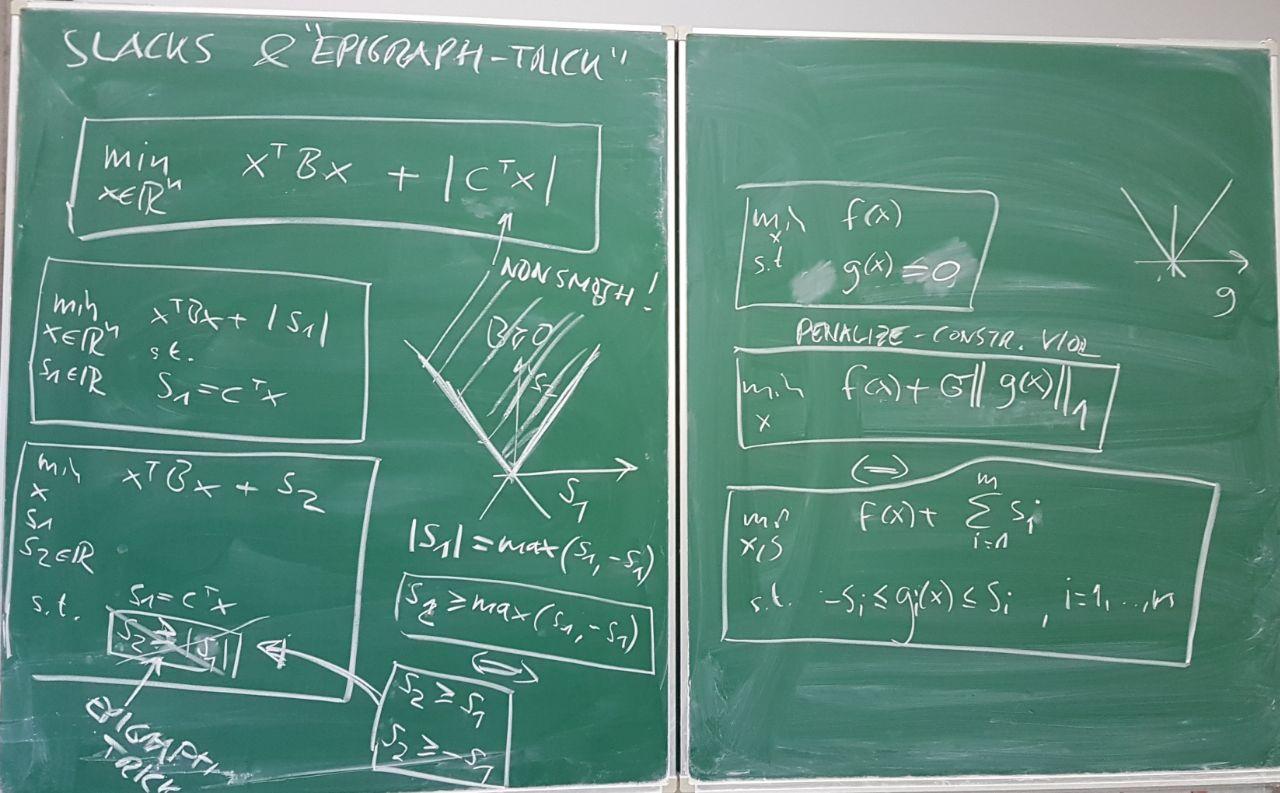 SLACKS & "EPIGRAPH-TRICK"
min x∈ℝⁿ xᵀBx + |cᵀx|
NONSMOOTH!
min x∈ℝⁿ s₁∈ℝ xᵀBx + |s₁|
s.t.
s₁ = cᵀx
B≥0
s₂
s₁
min x s₁ s₂∈ℝ xᵀBx + s₂
s.t. s₁ = cᵀx
s₂ ≥ |s₁|
EPIGRAPH
TRICK
|s₁| = max(s₁, -s₁)
s₂ ≥ max(s₁, -s₁)
⇔
s₂ ≥ s₁
s₂ ≥ -s₁
min x f(x)
s.t g(x) = 0
g
PENALIZE - CONSTR. VIOL
min x f(x) + σ‖g(x)‖₁
⇔
min x,s f(x) + ∑ᵢ₌₁ᵐ sᵢ
s.t. -sᵢ ≤ gᵢ(x) ≤ sᵢ , i=1,...,m